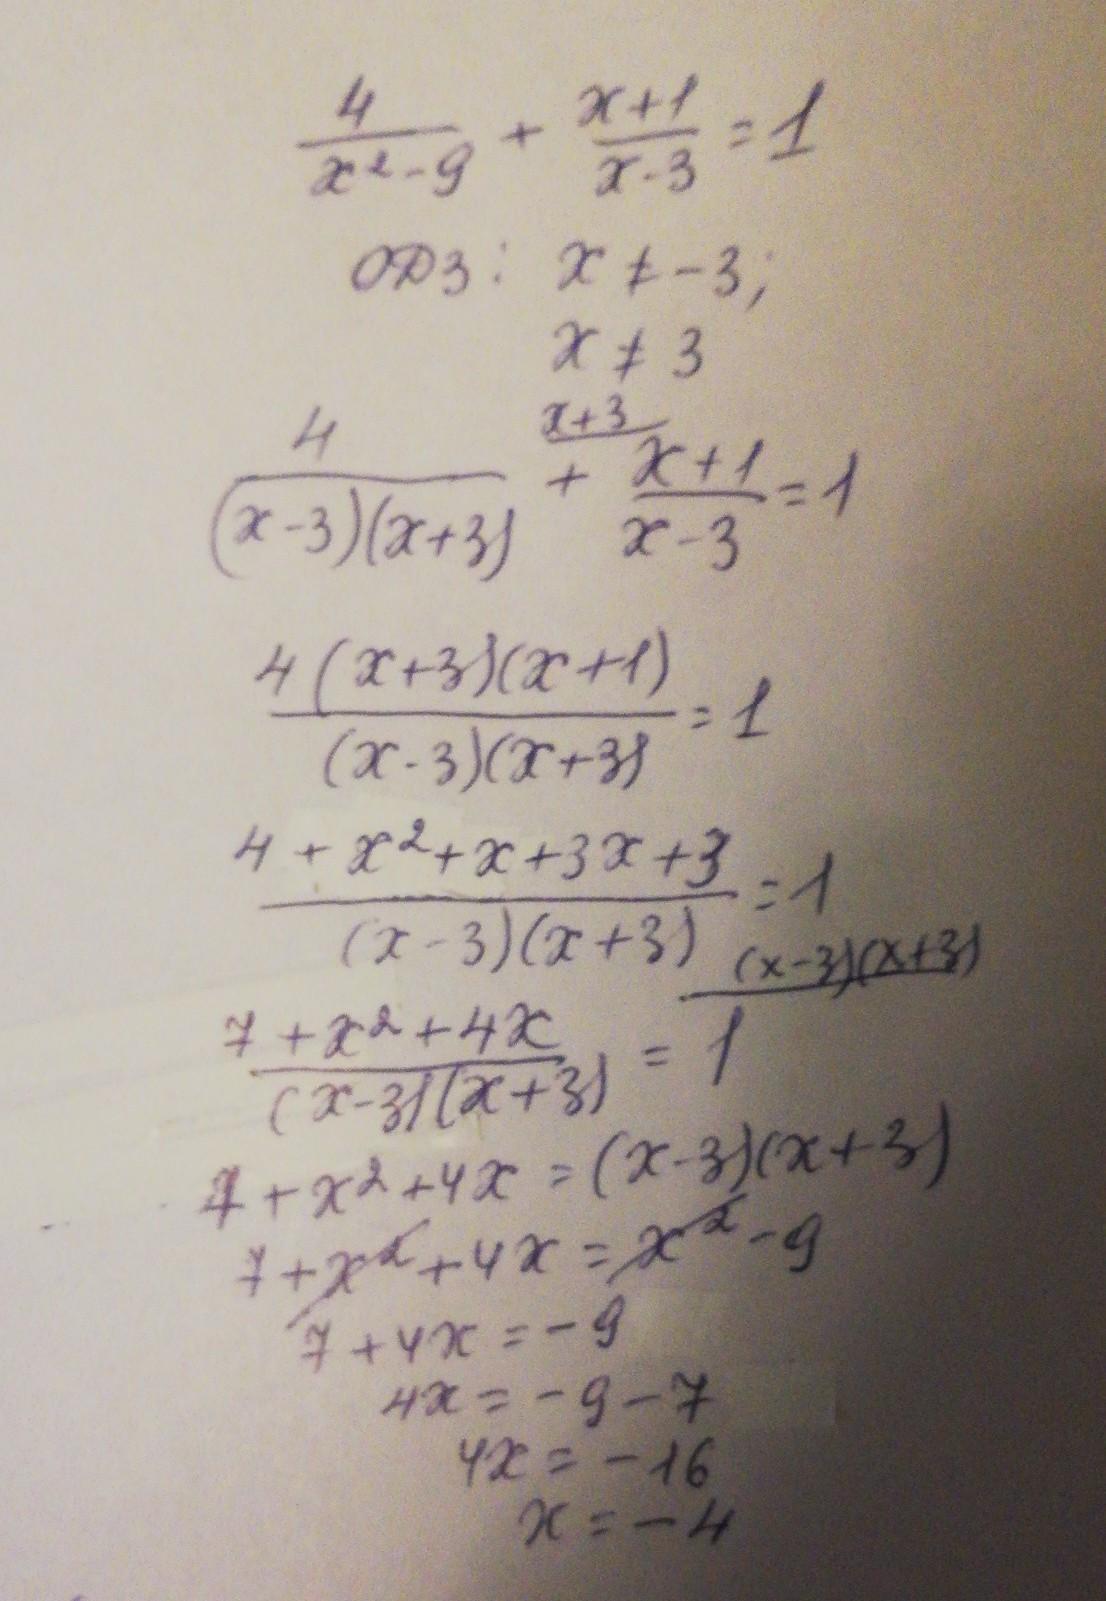 4/(x²-9) + (x+1)/(x-3) = 1
ОДЗ: x ≠ -3;
x ≠ 3
4/((x-3)(x+3)) + (x+1)/(x-3) = 1 x+3
4(x+3)(x+1)/((x-3)(x+3)) = 1
(4+x²+x+3x+3)/((x-3)(x+3)) = 1
(7+x²+4x)/((x-3)(x+3)) = 1 (x-3)(x+3)
7+x²+4x=(x-3)(x+3)
7+x²+4x=x²-9
7+4x=-9
4x=-9-7
4x=-16
x=-4